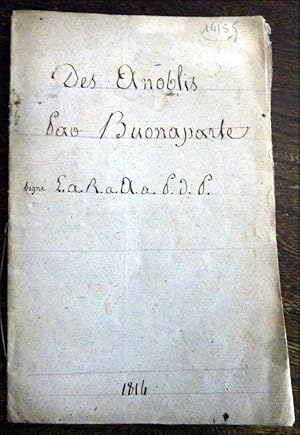 14159
Des Anoblis
par Buonaparte
signé L. a. R. a. A. a. P. d. P.
1814